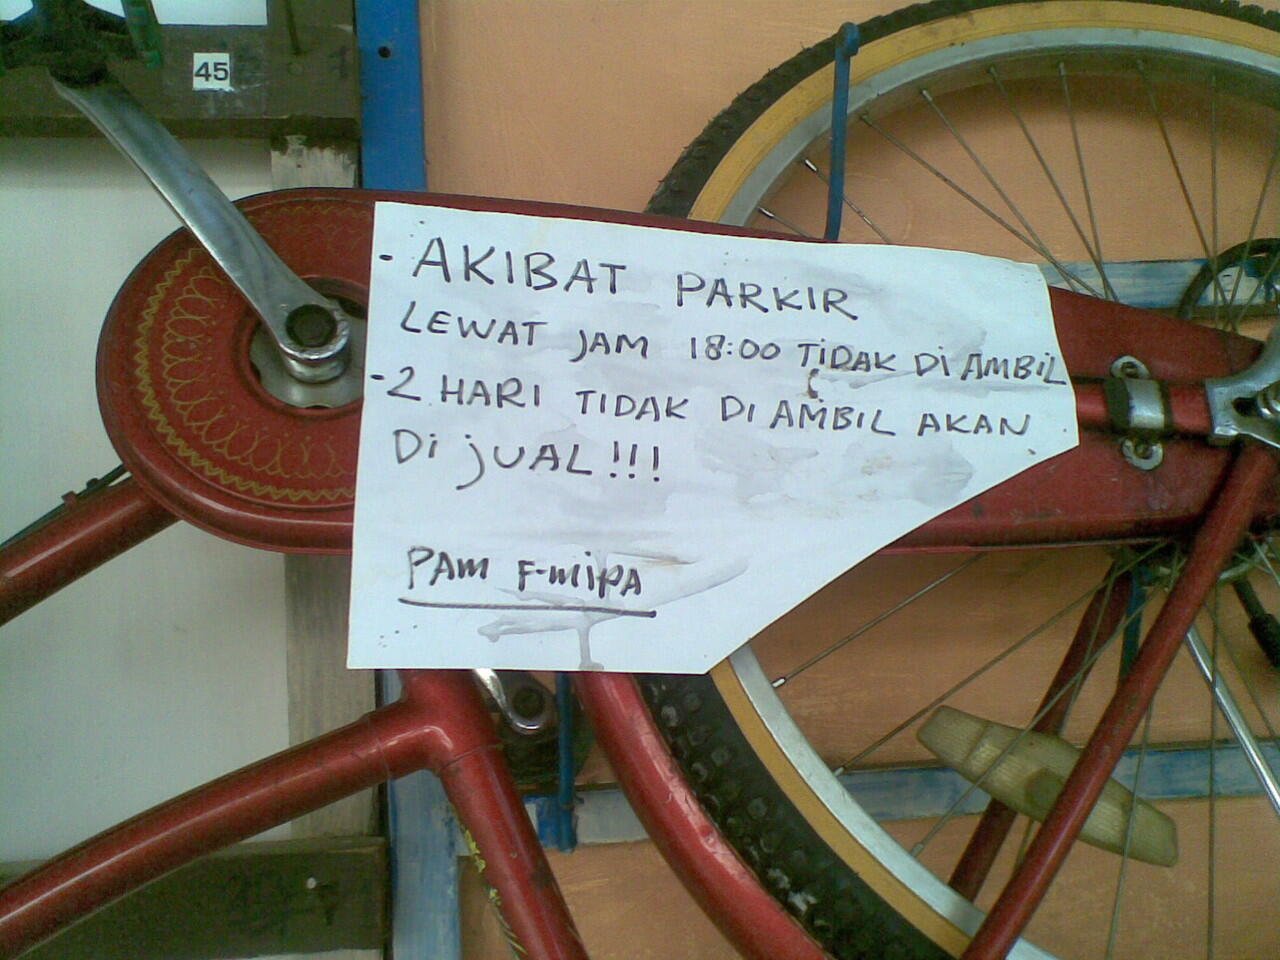 45
- AKIBAT PARKIR
LEWAT JAM 18:00 TiDAK Di AMBiL
- 2 HARI TIDAK DI AMBIL AKAN
Di jUAL!!!
PAM F-miPA